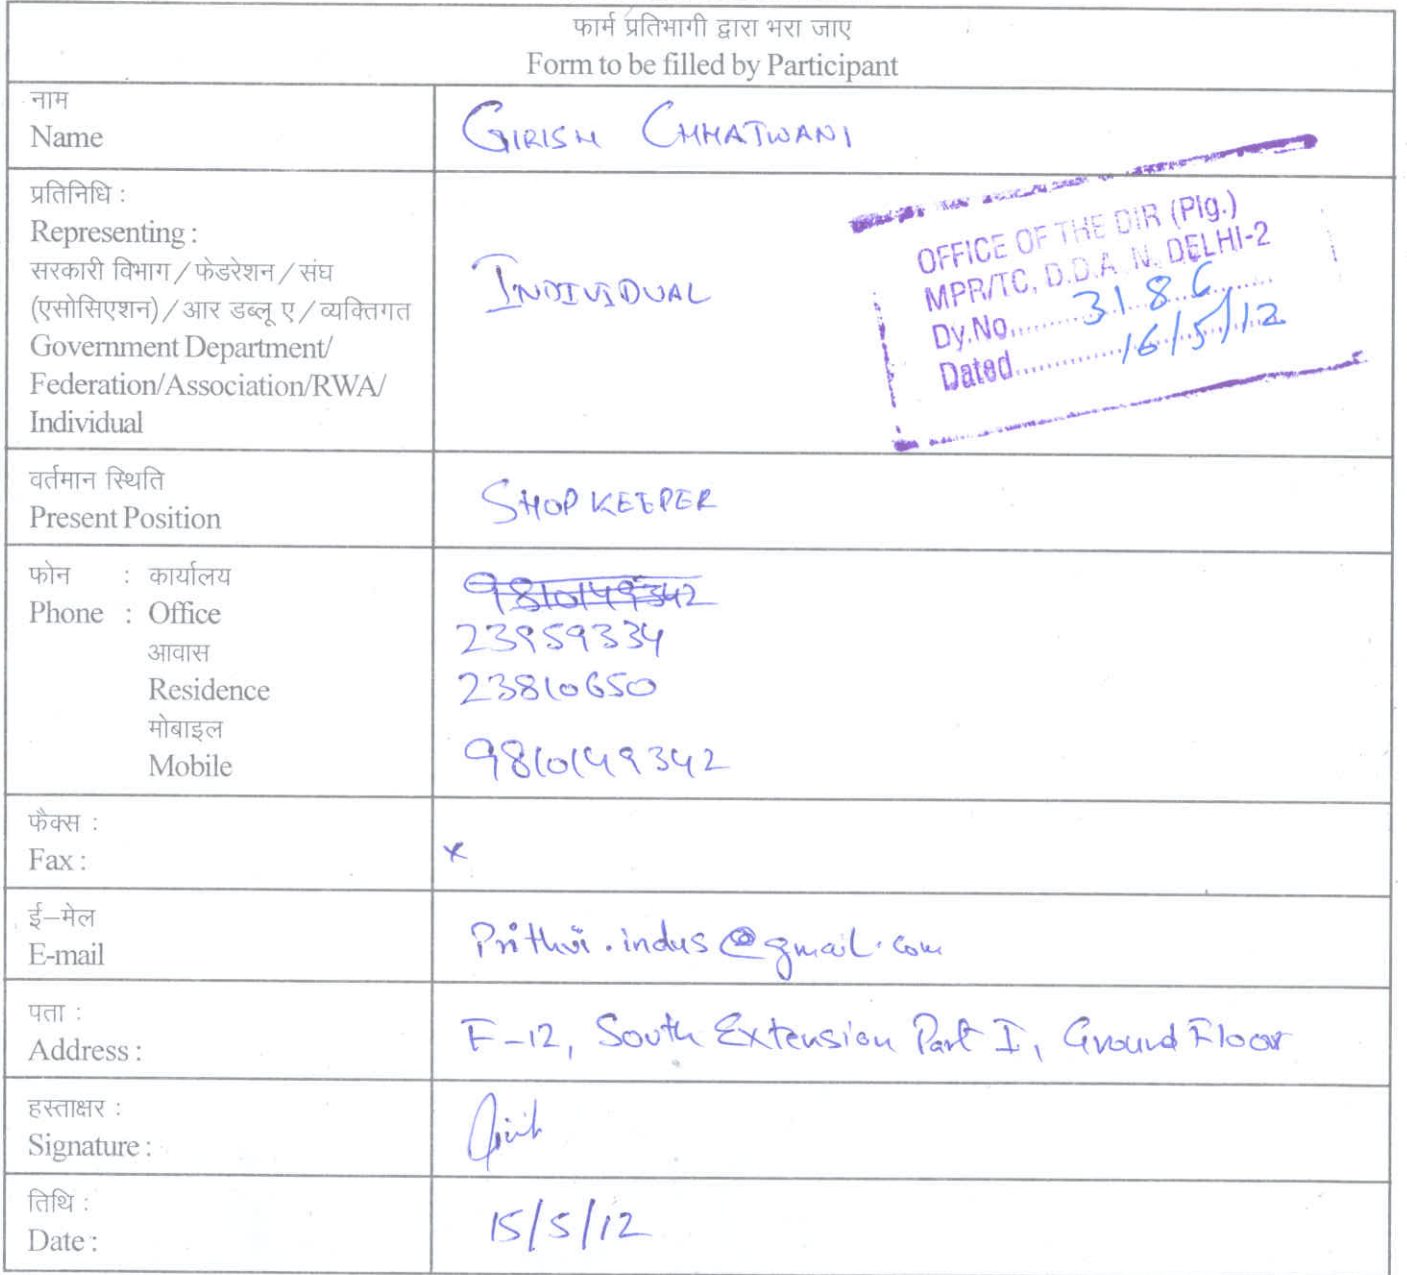 फार्म प्रतिभागी द्वारा भरा जाए
Form to be filled by Participant
नाम
Name
GIRISH CHHATWANI
प्रतिनिधि :
Representing :
सरकारी विभाग / फेडरेशन / संघ
(एसोसिएशन) / आर डब्लू ए / व्यक्तिगत
Government Department/
Federation/Association/RWA/
Individual
INDIVIDUAL
OFFICE OF THE DIR (Plg.)
MPR/TC, D.D.A. N. DELHI-2
Dy.No. 3186
Dated 16/5/12
वर्तमान स्थिति
Present Position
SHOPKEEPER
फोन : कार्यालय
Phone : Office
आवास
Residence
मोबाइल
Mobile
9810149342
23959334
23810650
9810149342
फैक्स :
Fax :
x
ई–मेल
E-mail
Prithvi.indus@gmail.com
पता :
Address :
F-12, South Extension Part I, Ground Floor
हस्ताक्षर :
Signature :
Girish
तिथि :
Date :
15/5/12